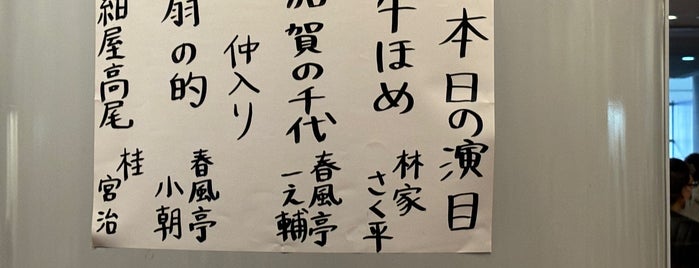 本日の演目
牛ほめ 林家さく平
加賀の千代 春風亭一之輔
仲入り
扇の的 春風亭小朝
紺屋高尾 桂宮治